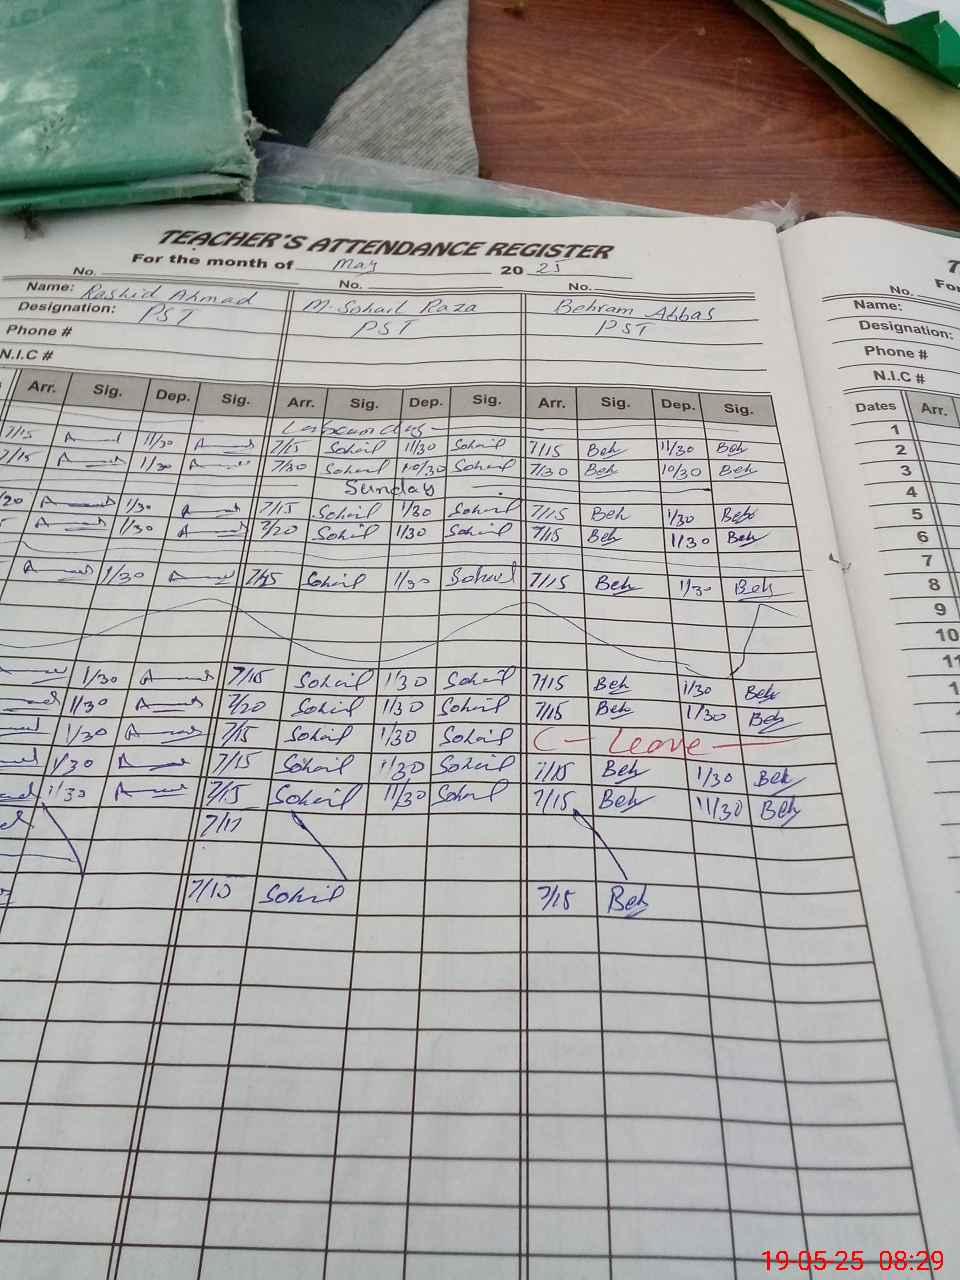 TEACHER'S ATTENDANCE REGISTER
For the month of May 20 25
No. No. No. No.
Name: Rashid Ahmad M. Sohail Raza Behram Abbas Name:
Designation: PST PST PST Designation:
Phone # Phone #
N.I.C # N.I.C #
Arr. Sig. Dep. Sig. Arr. Sig. Dep. Sig. Arr. Sig. Dep. Sig. Dates Arr.
1
7/15 11/30 7/15 Sohail 11/30 Sohail 7/15 Beh 11/30 Beh 2
7/15 11/30 7/30 Sohail 10/30 Sohail 7/30 Beh 10/30 Beh 3
Sunday 4
/20 1/30 7/15 Sohail 1/30 Sohail 7/15 Beh 1/30 Beh 5
1/30 7/20 Sohail 1/30 Sohail 7/15 Beh 1/30 Beh 6
7
1/30 7/15 Sohail 1/30 Sohail 7/15 Beh 1/30 Beh 8
9
10
11
1/30 7/15 Sohail 1/30 Sohail 7/15 Beh 1/30 Beh
1/30 7/20 Sohail 1/30 Sohail 7/15 Beh 1/30 Beh
1/30 7/15 Sohail 1/30 Sohail C - Leave
1/30 7/15 Sohail 1/30 Sohail 7/15 Beh 1/30 Beh
1/30 7/15 Sohail 11/30 Sohail 7/15 Beh 11/30 Beh
7/1
7/15 Sohail 7/15 Beh
19-05-25 08:29